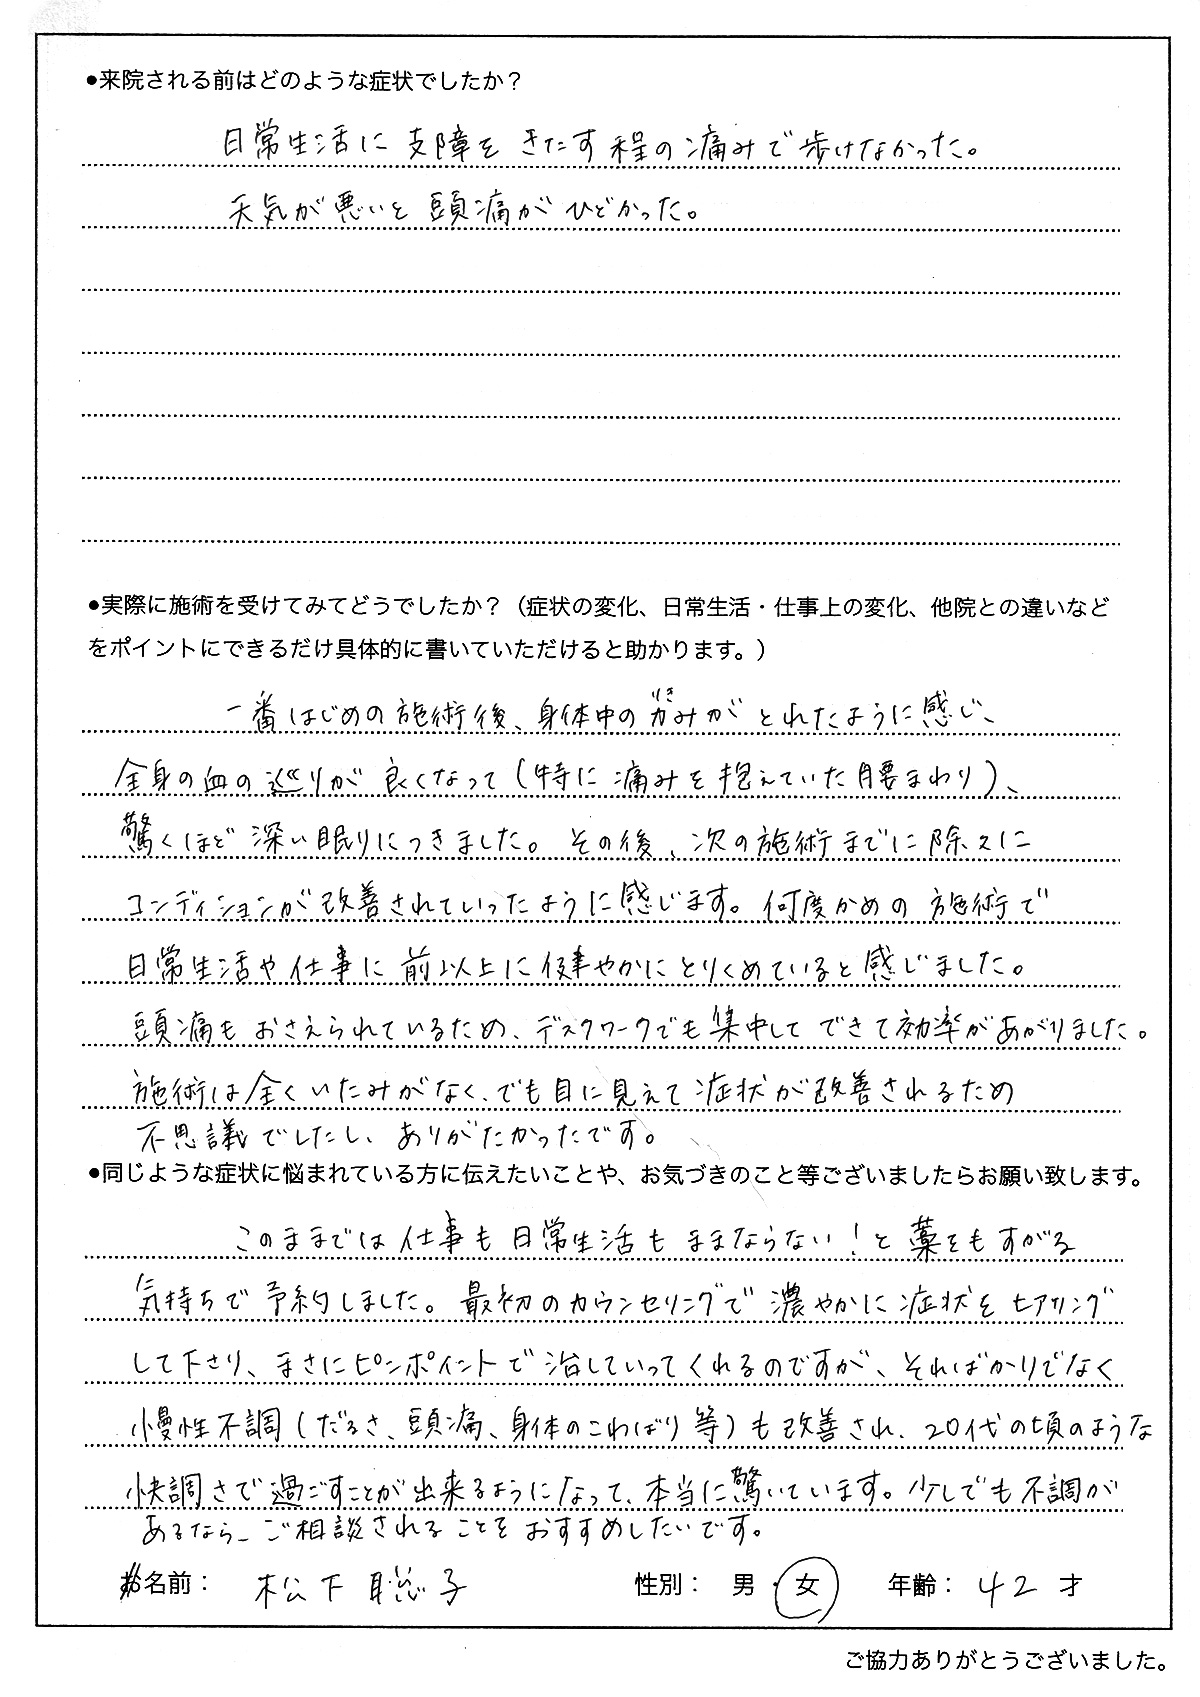 ●来院される前はどのような症状でしたか？
日常生活に支障をきたす程の痛みで歩けなかった。
天気が悪いと頭痛がひどかった。
●実際に施術を受けてみてどうでしたか？（症状の変化、日常生活・仕事上の変化、他院との違いなど
をポイントにできるだけ具体的に書いていただけると助かります。）
りき
一番はじめの施術後、身体中の力みがとれたように感じ、
全身の血の巡りが良くなって(特に痛みを抱えていた腰まわり)、
驚くほど深い眠りにつきました。その後、次の施術までに除々に
コンディションが改善されていったように感じます。何度かめの施術で
日常生活や仕事に前以上に健やかにとりくめていると感じました。
頭痛もおさえられているため、デスクワークでも集中してできて効率があがりました。
施術は全くいたみがなく、でも目に見えて症状が改善されるため
不思議でしたし、ありがたかったです。
●同じような症状に悩まれている方に伝えたいことや、お気づきのこと等ございましたらお願い致します。
このままでは仕事も日常生活もままならない！と藁をもすがる
気持ちで予約しました。最初のカウンセリングで濃やかに症状をヒアリング
して下さり、まさにピンポイントで治していってくれるのですが、そればかりでなく
慢性不調(だるさ、頭痛、身体のこわばり等)も改善され、20代の頃のような
快調さで過ごすことが出来るようになって、本当に驚いています。少しでも不調が
あるなら、ご相談されることをおすすめしたいです。
お名前： 松下聡子 性別： 男・女 年齢： 42才
ご協力ありがとうございました。